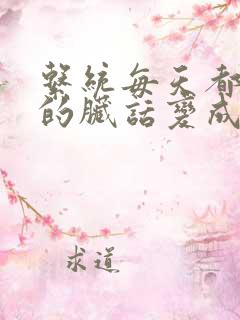 繫統每天都
的臟話變成
求道